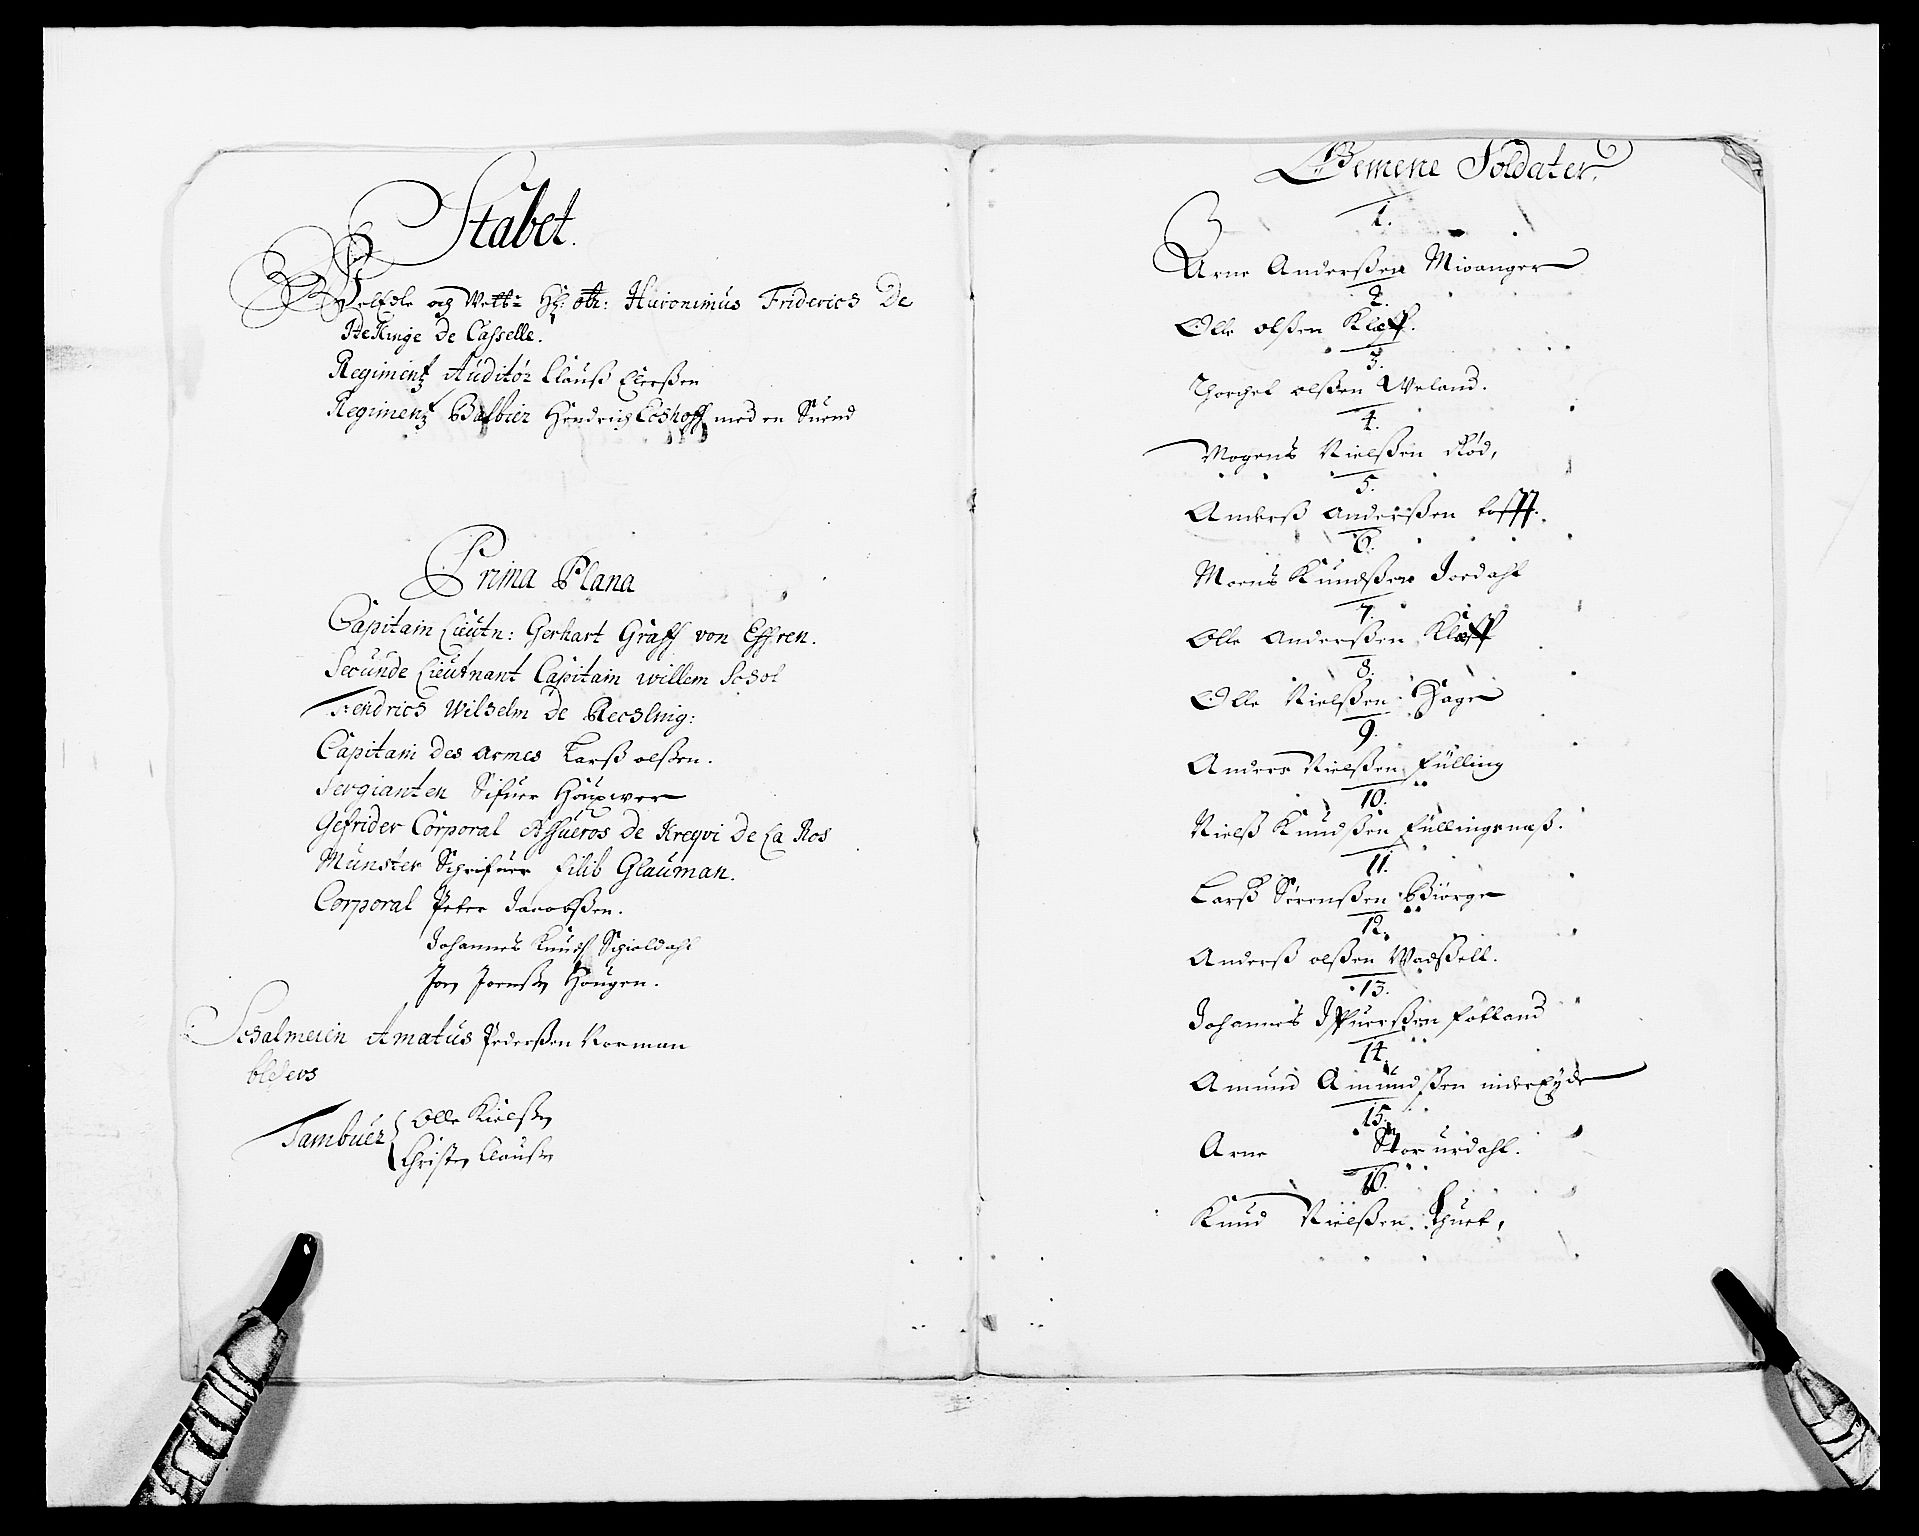 Stabet.
WelEdle og Velb: Hr: Obr: Hieronimus Friderics De
de Casselle.
Regimentz Auditör Clauß Elerßen
Regimentz Balbier Hendrich med en Suend
Prima Plana
Capitain Lieutn: Gerhart Graff von Effren.
Secunde Lieutnant Capitain willem
Fendrics Wilhelm de
Capitain des Armes Larß olßen.
Sergianten Sifuer
Gefrider Corporal Assueros de Kreqvi De La Ros
Münster Schrifuer Filib Glauman.
Corporal Peter Jacobßen.
Johannes Knuds Schieldahl
Jon Joenßen Hougen.
Schalmeien Amatus Pederßen Norman
blesers
Tambuer Olle Nielßen
Christen Claußen
Gemene Soldater.
1.
Arne Anderßen Mioanger
2.
Olle olßen Kleff.
3.
Thorchel olßen Weland.
4.
Mogens Nielßen Rød,
5.
Anderß Anderßen tofft.
6.
Moens Knudßen Jordahl
7.
Olle Anderßen Kleff
8.
Olle Nielßen Hage
9.
Anders Nielßen Fülling
10.
Nielß Knudßen Füllingsneß.
11.
Larß Sörenßen Biörge
12.
Anderß olßen Wadßell.
13.
Johannes Ifuerßen Fotland
14.
Amund Amundßen
15.
Arne Stor urdahl.
16.
Knud Nielßen